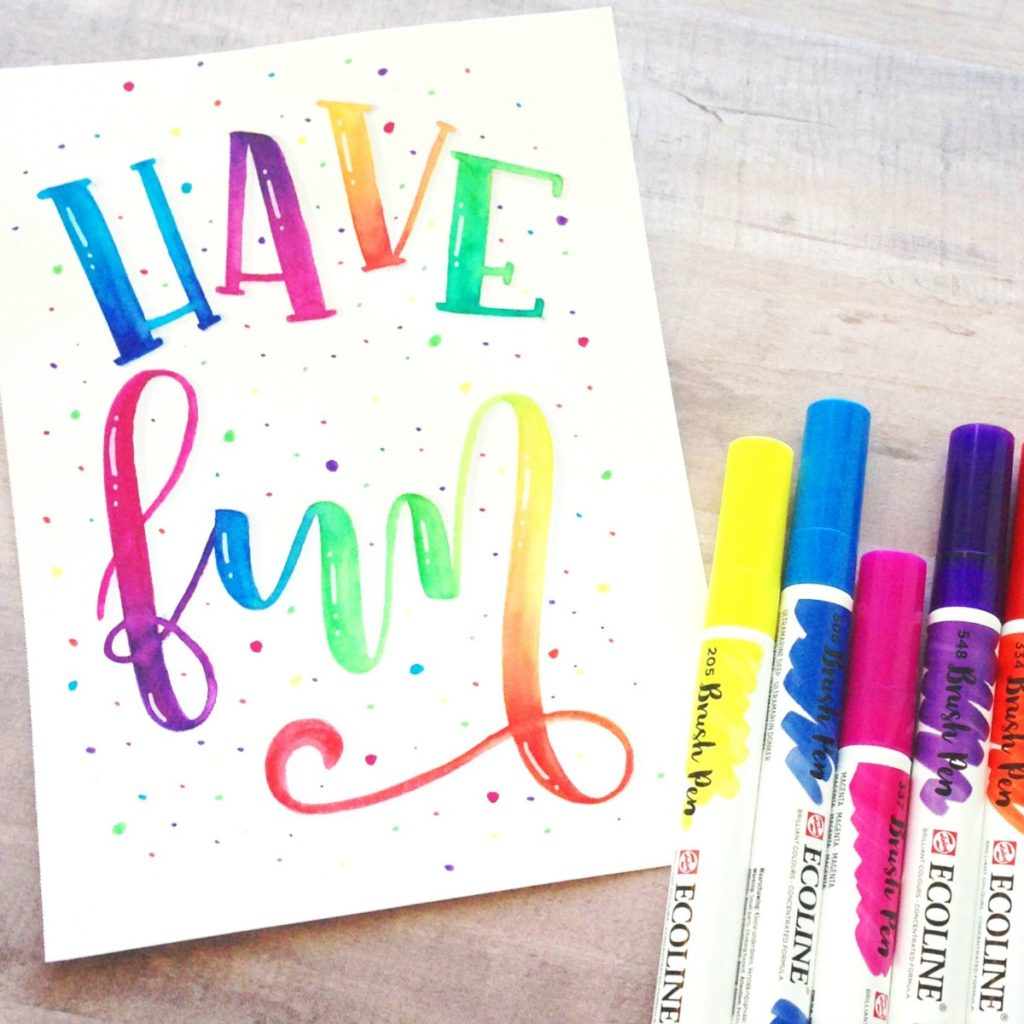 HAVE
fun
205 Brush Pen
ECOLINE
506 Brush Pen
ULTRAMARINE DEEP · ULTRAMARIJN DONKER
BRILLIANT COLOURS · CONCENTRATED FORMULA
ECOLINE®
337 Brush Pen
MAGENTA MAGENTA MAGENTA
548 Brush Pen
BRILLIANT COLOURS · CONCENTRATED FORMULA
ECOLINE®
334 Brush Pen
BRILLIANT COLOURS · CONCENTRATED FORMULA
ECOLINE